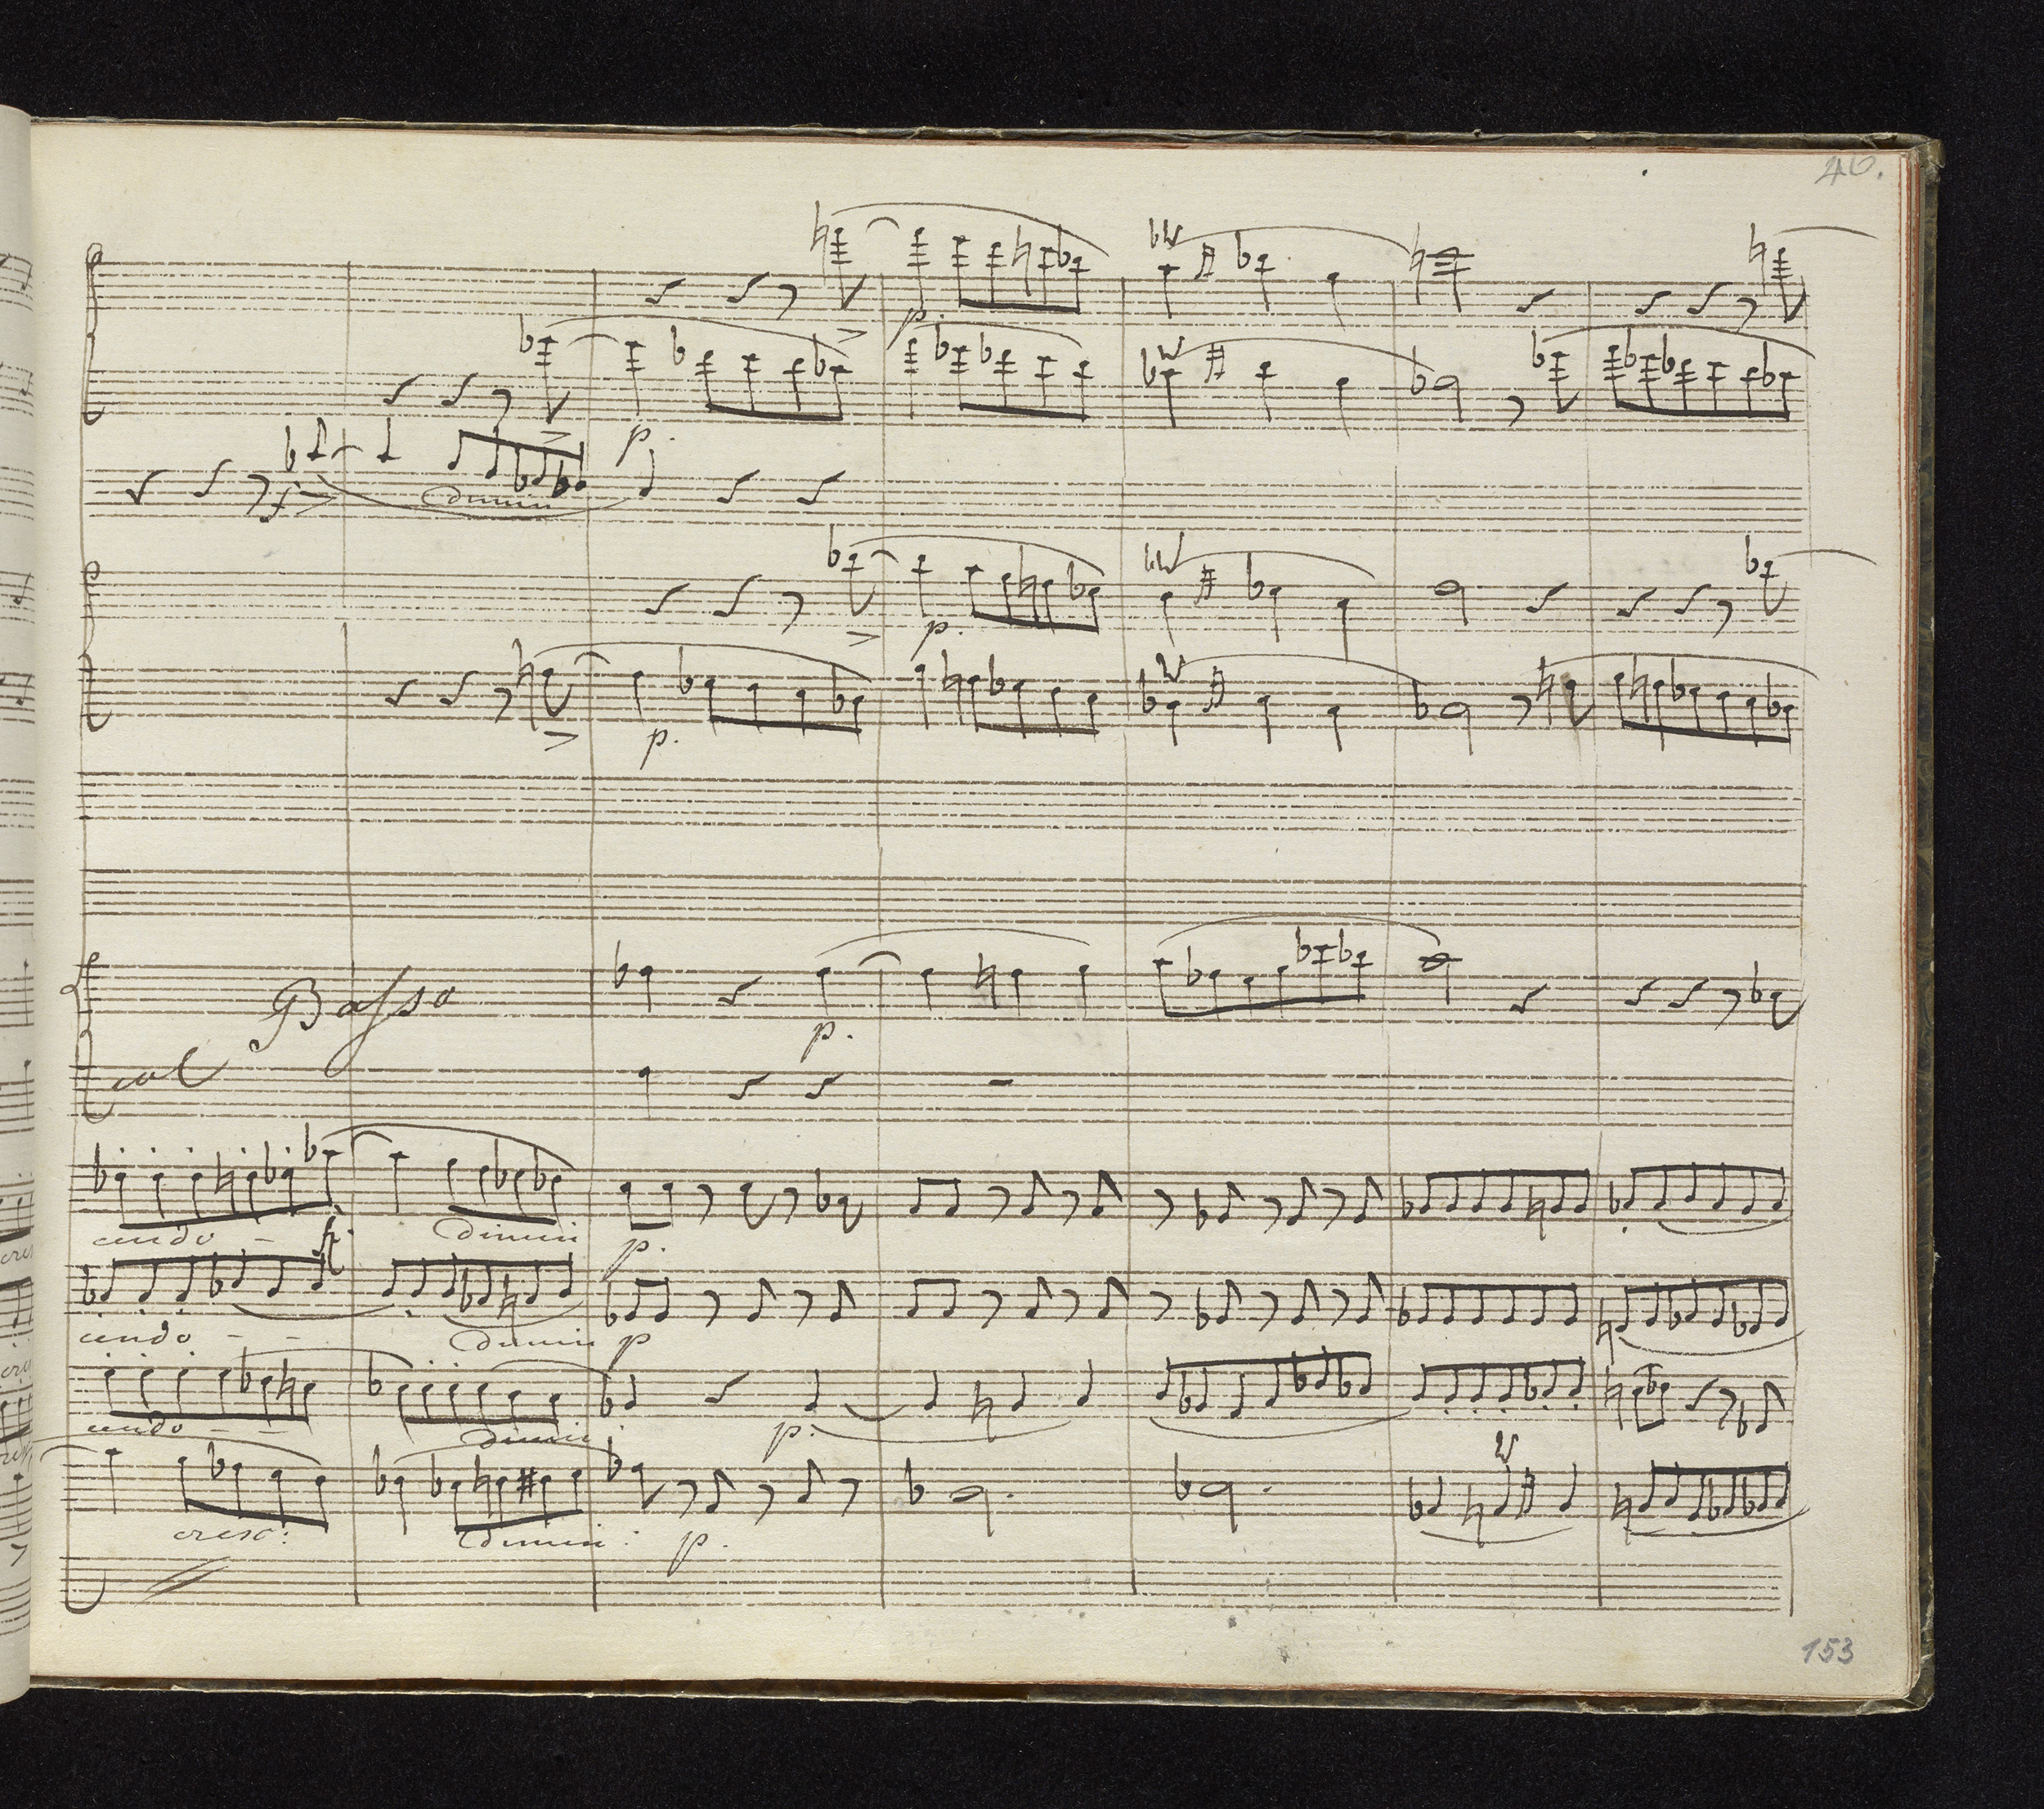 46.
p.
p.
f dimin
p.
p.
Basso
p.
col
cendo - f. dimin p.
cendo - - dimin p
cendo - - dimin: p.
cresc: dimin: p.
153